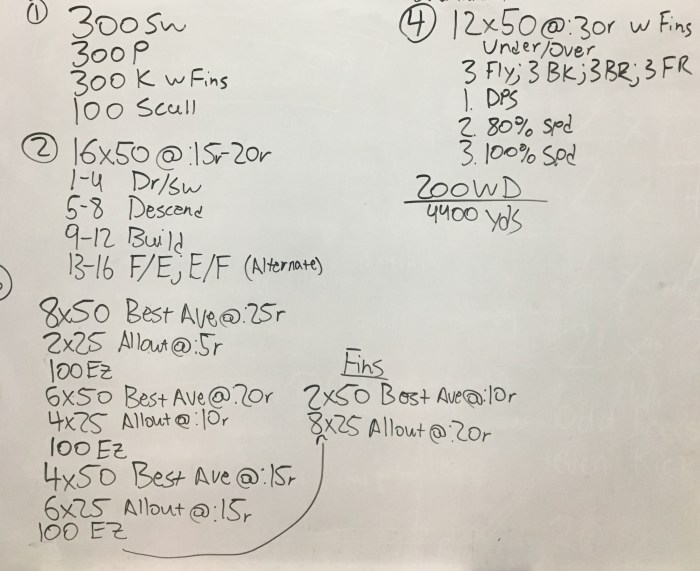 ① 300 Sw
300 P
300 K w Fins
100 Scull
② 16x50 @ :15r-20r
1-4 Dr/Sw
5-8 Descend
9-12 Build
13-16 F/E; E/F (Alternate)
8x50 Best Ave @ :25r
2x25 Allout @ :5r
100 EZ
6x50 Best Ave @ :20r
4x25 Allout @ :10r
100 EZ
4x50 Best Ave @ :15r
6x25 Allout @ :15r
100 EZ
Fins
2x50 Best Ave @ :10r
8x25 Allout @ :20r
④ 12x50 @ :30r w Fins
Under/Over
3 Fly; 3 BK; 3 BR; 3 FR
1. DPS
2. 80% Spd
3. 100% Spd
200 WD
4400 yds